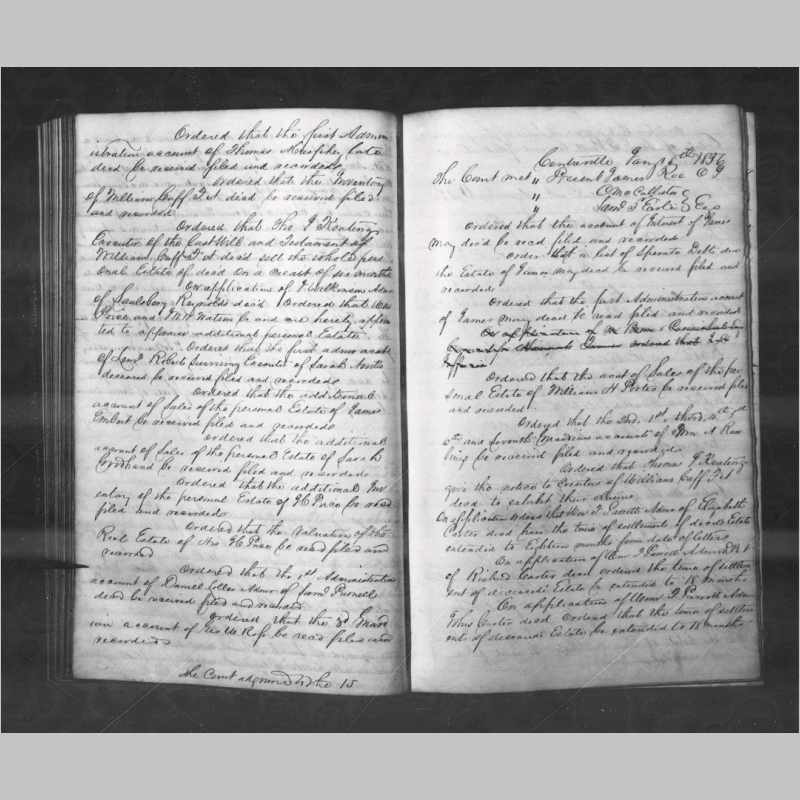 Ordered that the first Admin
istration account of Thomas late
decd be received filed and recorded
Ordered that the Inventory
of William Cuff F. N. decd be received filed
and recorded
Ordered that Tho J Keating
Executor of the Last Will and Testament of
William Cuff F N decd sell the whole pers
onal Estate of decd on a credit of six months
On application of J Wilkinson Admr
of Saulsberry Reynolds decd Ordered that
Price and Watson be and are hereby appoin
ted to appraise additional personal Estate
Ordered that the first admn account
of Robert surviving Executor of Sarah
deceased be received filed and recorded
Ordered that the additional
account of Sales of the personal Estate of James
be received filed and recorded
Ordered that the additional
account of Sales of the personal Estate of Sarah
be received filed and recorded
Ordered that the additional Inv
entory of the personal Estate of Paca be recd
filed and recorded
Ordered that the valuation of the
Real Estate of Paca be recd filed and
recorded
Ordered that the 1st Administration
account of Daniel Admr of Saml Pernell
decd be received filed and recorded
Ordered that the 3d Guard
ian account of Geo W Roe be recd filed and
recorded
The Court adjourned to the 15
Centreville Jany 15th 1836
The Court met Present James Roe C J
C McCallister
Saml T Earle Esq
Ordered that the account of Interest of James
May decd be recd filed and recorded
Order that a list of Sperate Debts due
the Estate of James May decd be received filed and
recorded
Ordered that the first Administration account
of James May decd be recd filed and recorded
On application of
Hannah James ordered that
Ordered that the acct of Sales of the per
sonal Estate of William H Porter be received filed
and recorded
Ordered that the 2nd, 1st, third, 4th 5th
6th and seventh Guardians account of Wm A Raw
lings be received filed and recorded
Ordered that Thomas J Keating
give the notice to Creditors of William Cuff F N
decd to exhibit their claims
On application ordered that Wm J Parrott Admr of Elizabeth
Carter decd have the time of settlement of decds Estate
extended to Eighteen months from date of letters
On application of Wm J Parrott Admr
of Richd Carter decd ordered the time of settlem
ent of deceaseds Estate be extended to 18 months
On application of Wm J Parrott Admr
John Carter decd ordered that the time of settlem
ent of deceaseds Estate be extended to 18 months